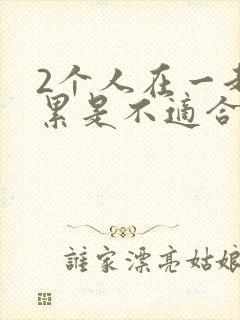 2个人在一
累是不適合
誰家漂亮姑娘